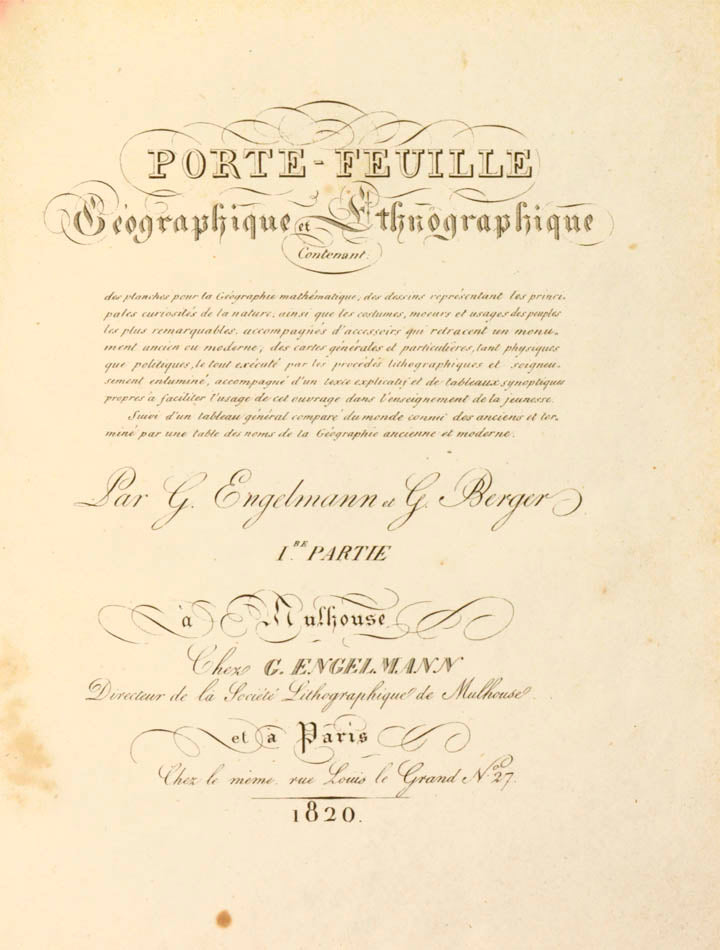 PORTE-FEUILLE
Géographique et Ethnographique
Contenant:
des planches pour la Géographie mathématique, des dessins représentant les princi-
pales curiosités de la nature, ainsi que les costumes, moeurs et usages des peuples
les plus remarquables, accompagnés d'accessoirs qui retracent un monu-
ment ancien ou moderne, des cartes générales et particulières, tant physiques
que politiques, le tout exécuté par les procédés lithographiques et soigneu-
sement enluminé, accompagné d'un texte explicatif et de tableaux synoptiques
propres à faciliter l'usage de cet ouvrage dans l'enseignement de la jeunesse.
Suivi d'un tableau général comparé du monde connu des anciens et ter-
miné par une table des noms de la Géographie ancienne et moderne.
Par G. Engelmann et G. Berger
I.RE PARTIE
à Mulhouse
Chez G. ENGELMANN
Directeur de la Société Lithographique de Mulhouse
et à Paris
Chez le même, rue Louis le Grand N.o 27.
1820.